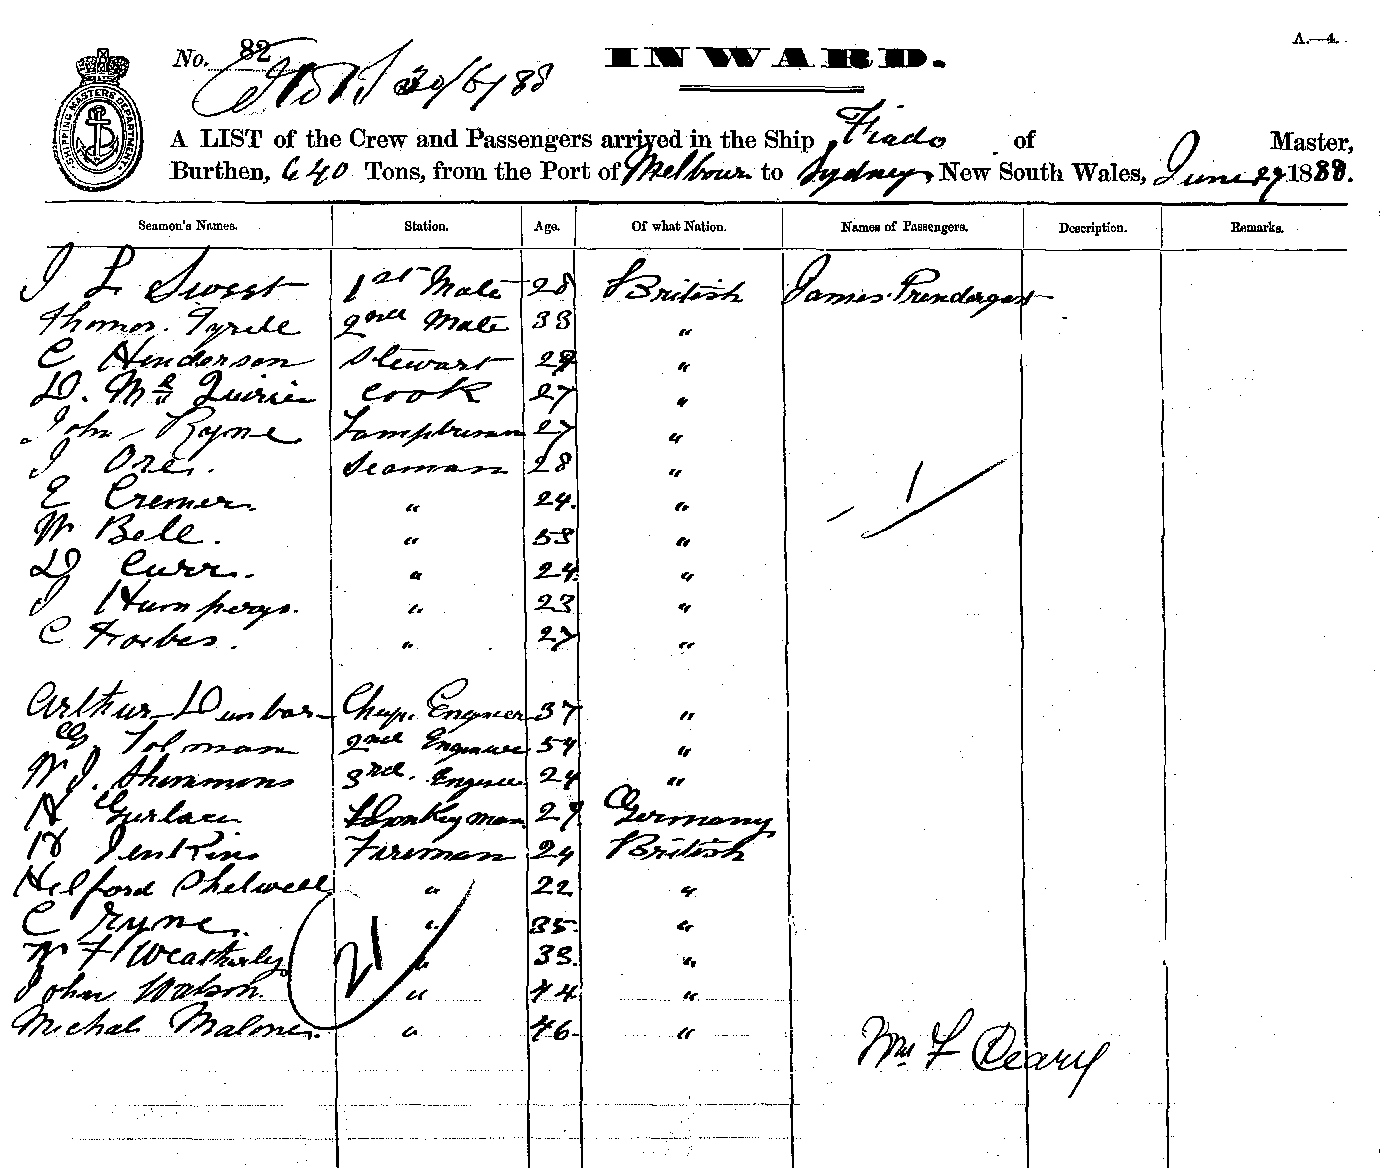 A.—4.
No. 82 INWARD.
30/6/88
SHIPPING MASTERS DEPARTMENT
A LIST of the Crew and Passengers arrived in the Ship Fiado of Master,
Burthen, 640 Tons, from the Port of Melbour to Sydney, New South Wales, June 29 1888.
Seamen's Names. Station. Age. Of what Nation. Names of Passengers. Description. Remarks.
J L Sweet 1st Mate 28 British James Prendergast
Thomas Tyrell 2nd Mate 33 "
C Henderson Stewart 29 "
D. Mc Quirie Cook 27 "
John Ryne Lamptrimer 27 "
J Seaman 28 "
E Cremer " 24 "
W Bell. " 53 "
D Curr. " 24 "
J Humperys. " 23 "
C Forbes. " 27 "
Arthur Dunbar Engineer 37 "
G Tolman 2nd Engineer 54 "
W J. Shimmons 3rd. Engineer 24 "
H Gerlace Donkeyman 29 Germany
H Jenkins Fireman 24 British
Helford Shelwell " 22 "
C Ryne. " 35 "
W F Weatherley " 33 "
John Watson. " 44 "
Michal Malone. " 46 "
1
21
Wm F Deary